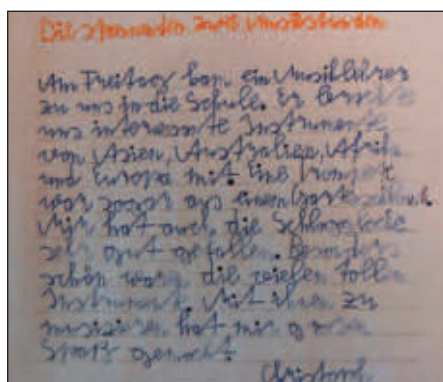 Die spannenden zwei Musikstunden
Am Freitag kam ein Musiklehrer
zu uns in die Schule. Er brachte
uns interessante Instrumente
von Asien, Australien, Afrika
und Europa mit. Eine Trompete
war sogar aus einem
Mir hat auch die Schlange
sehr gut gefallen. Besonders
schön waren die vielen tollen
Instrument. Mit ihnen zu
musizieren hat mir grossen
Spaß gemacht.
Christoph